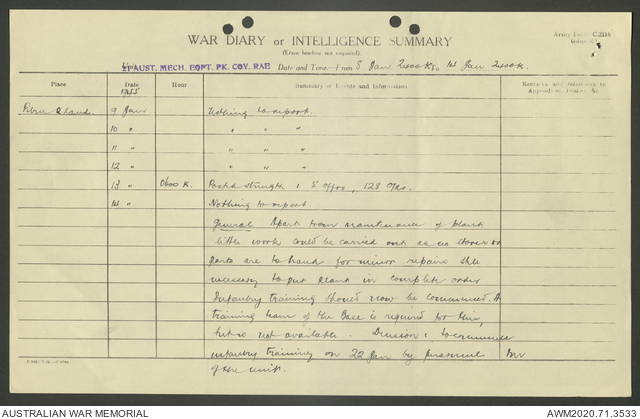 Army Form C.2118
WAR DIARY or INTELLIGENCE SUMMARY
(Erase heading not required).
AUST. MECH. EQPT. PK. COY. RAE Date and Time—From 8 Jan 2400K to 14 Jan 2400K.
Place Date Hour Summary of Events and Information Remarks and references to Appendices, Diaries, &c.
1945
9 Jan Nothing to report.
10 " " " "
11 " " " "
12 " " " "
13 " 0600 K. Posted strength : 5 offrs, 128 ORs.
14 " Nothing to report.
General Apart from maintenance of plant
little work could be carried out as no stores or
parts are to hand for minor repairs still
necessary to put plant in complete order
Infantry training should now be commenced. A
training team of the Base is required for this,
but is not available. Decision : to commence
infantry training on 22 Jan by personnel
of the unit.
AUSTRALIAN WAR MEMORIAL AWM2020.71.3533